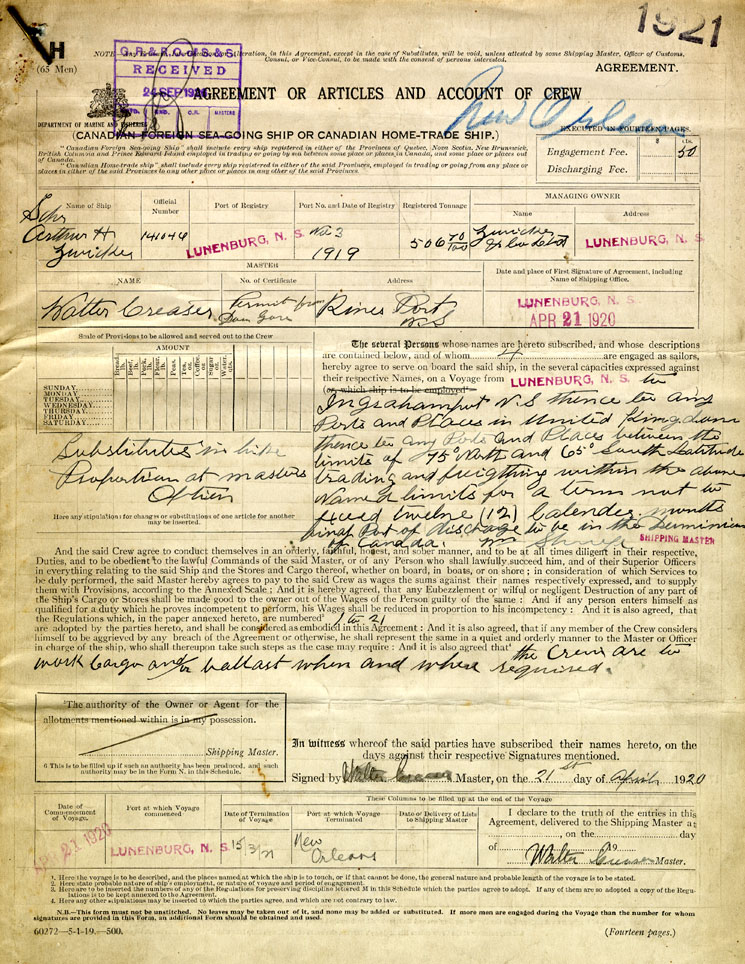 1921
H
(65 Men)
NOTE—Any Erasure, Interlineation, or Alteration, in this Agreement, except in the case of Substitutes, will be void, unless attested by some Shipping Master, Officer of Customs,
Consul, or Vice-Consul, to be made with the consent of persons interested.
AGREEMENT.
G.R. & R.O. of S. & S.
RECEIVED
24 SEP
C.R. MASTERS
AGREEMENT OR ARTICLES AND ACCOUNT OF CREW
New Orleans
DEPARTMENT OF MARINE AND FISHERIES
(CANADIAN FOREIGN SEA-GOING SHIP OR CANADIAN HOME-TRADE SHIP.)
EXECUTED IN FOURTEEN PAGES.
"Canadian Foreign Sea-going Ship" shall include every ship registered in either of the Provinces of Quebec, Nova Scotia, New Brunswick,
British Columbia and Prince Edward Island employed in trading or going by sea between some place or places in Canada, and some place or places out
of Canada.
"Canadian Home-trade ship" shall include every ship registered in either of the said Provinces, employed in trading or going from any place or
places in either of the said Provinces to any other place or places in any other of the said Provinces.
$ cts.
Engagement Fee. 50
Discharging Fee.
Name of Ship
Official Number
Port of Registry
Port No. and Date of Registry
Registered Tonnage
MANAGING OWNER
Name
Address
Schr Arthur H Zwicker
141044
LUNENBURG, N. S.
No 3 1919
506 70/100
Zwicker & Co Ltd
LUNENBURG, N. S.
MASTER
NAME
No. of Certificate
Address
Date and place of First Signature of Agreement, including
Name of Shipping Office.
Walter Creaser
Permit from
Rines Port
N.S
LUNENBURG, N. S.
APR 21 1920
Scale of Provisions to be allowed and served out to the Crew
AMOUNT
Bread, lb.
Beef, lb.
Pork, lb.
Flour, lb.
Peas.
Tea, oz.
Coffee, oz.
Sugar, oz.
Water, qts.
SUNDAY
MONDAY
TUESDAY
WEDNESDAY
THURSDAY
FRIDAY
SATURDAY
Substitutes in like
Proportion at masters
Option
Here any stipulation for changes or substitutions of one article for another
may be inserted.
The several Persons whose names are hereto subscribed, and whose descriptions
are contained below, and of whom 4 are engaged as sailors,
hereby agree to serve on board the said ship, in the several capacities expressed against
their respective Names, on a Voyage from LUNENBURG, N. S. to
(or, which ship is to be employed)
Ingrahamport N.S thence to any
Ports and Places in United Kingdom
thence to any Ports and Places between the
limits of 75° North and 65° South Latitude
trading and freigthing within the above
Named limits for a term not to
exceed twelve (12) calender months
final Port of discharge to be in the Dominion
of Canada.
SHIPPING MASTER
And the said Crew agree to conduct themselves in an orderly, faithful, honest, and sober manner, and to be at all times diligent in their respective,
Duties, and to be obedient to the lawful Commands of the said Master, or of any Person who shall lawfully succeed him, and of their Superior Officers
in everything relating to the said Ship and the Stores and Cargo thereof, whether on board, in boats, or on shore ; in consideration of which Services to
be duly performed, the said Master hereby agrees to pay to the said Crew as wages the sums against their names respectively expressed, and to supply
them with Provisions, according to the Annexed Scale ; And it is hereby agreed, that any Embezzlement or wilful or negligent Destruction of any part of
the Ship's Cargo or Stores shall be made good to the owner out of the Wages of the Person guilty of the same : And if any person enters himself as
qualified for a duty which he proves incompetent to perform, his Wages shall be reduced in proportion to his incompetency : And it is also agreed, that
the Regulations which, in the paper annexed hereto, are numbered 1 to 21
are adopted by the parties hereto, and shall be considered as embodied in this Agreement : And it is also agreed, that if any member of the Crew considers
himself to be aggrieved by any breach of the Agreement or otherwise, he shall represent the same in a quiet and orderly manner to the Master or Officer
in charge of the ship, who shall thereupon take such steps as the case may require : And it is also agreed that the Crew are to
work Cargo and/or ballast when and where required.
The authority of the Owner or Agent for the
allotments mentioned within is in my possession.
Shipping Master.
6 This is to be filled up if such an authority has been produced, and such
authority may be in the Form N. in this Schedule.
In witness whereof the said parties have subscribed their names hereto, on the
days against their respective Signatures mentioned.
Signed by Walter Creaser Master, on the 21st day of April 1920
These Columns to be filled up at the end of the Voyage
Date of Commencement of Voyage.
Port at which Voyage commenced
Date of Termination of Voyage
Port at which Voyage Terminated
Date of Delivery of Lists to Shipping Master
APR 21 1920
LUNENBURG, N. S.
15/3/21
New Orleans
I declare to the truth of the entries in this
Agreement, delivered to the Shipping Master at
, on the day
of 19
Walter Creaser Master.
1. Here the voyage is to be described, and the places named at which the ship is to touch, or if that cannot be done, the general nature and probable length of the voyage is to be stated.
2. Here state probable nature of ship's employment, or nature of voyage and period of engagement.
3. Here are to be inserted the numbers of any of the Regulations for preserving discipline lettered M in this Schedule which the parties agree to adopt. If any of them are so adopted a copy of the Regulations is to be kept annexed to the Agreement.
4. Here any other stipulations may be inserted to which the parties agree, and which are not contrary to law.
N.B.—This form must not be unstitched. No leaves may be taken out of it, and none may be added or substituted. If more men are engaged during the Voyage than the number for whom
signatures are provided in this Form, an additional Form should be obtained and used.
60272—5-1-19.—500.
(Fourteen pages.)